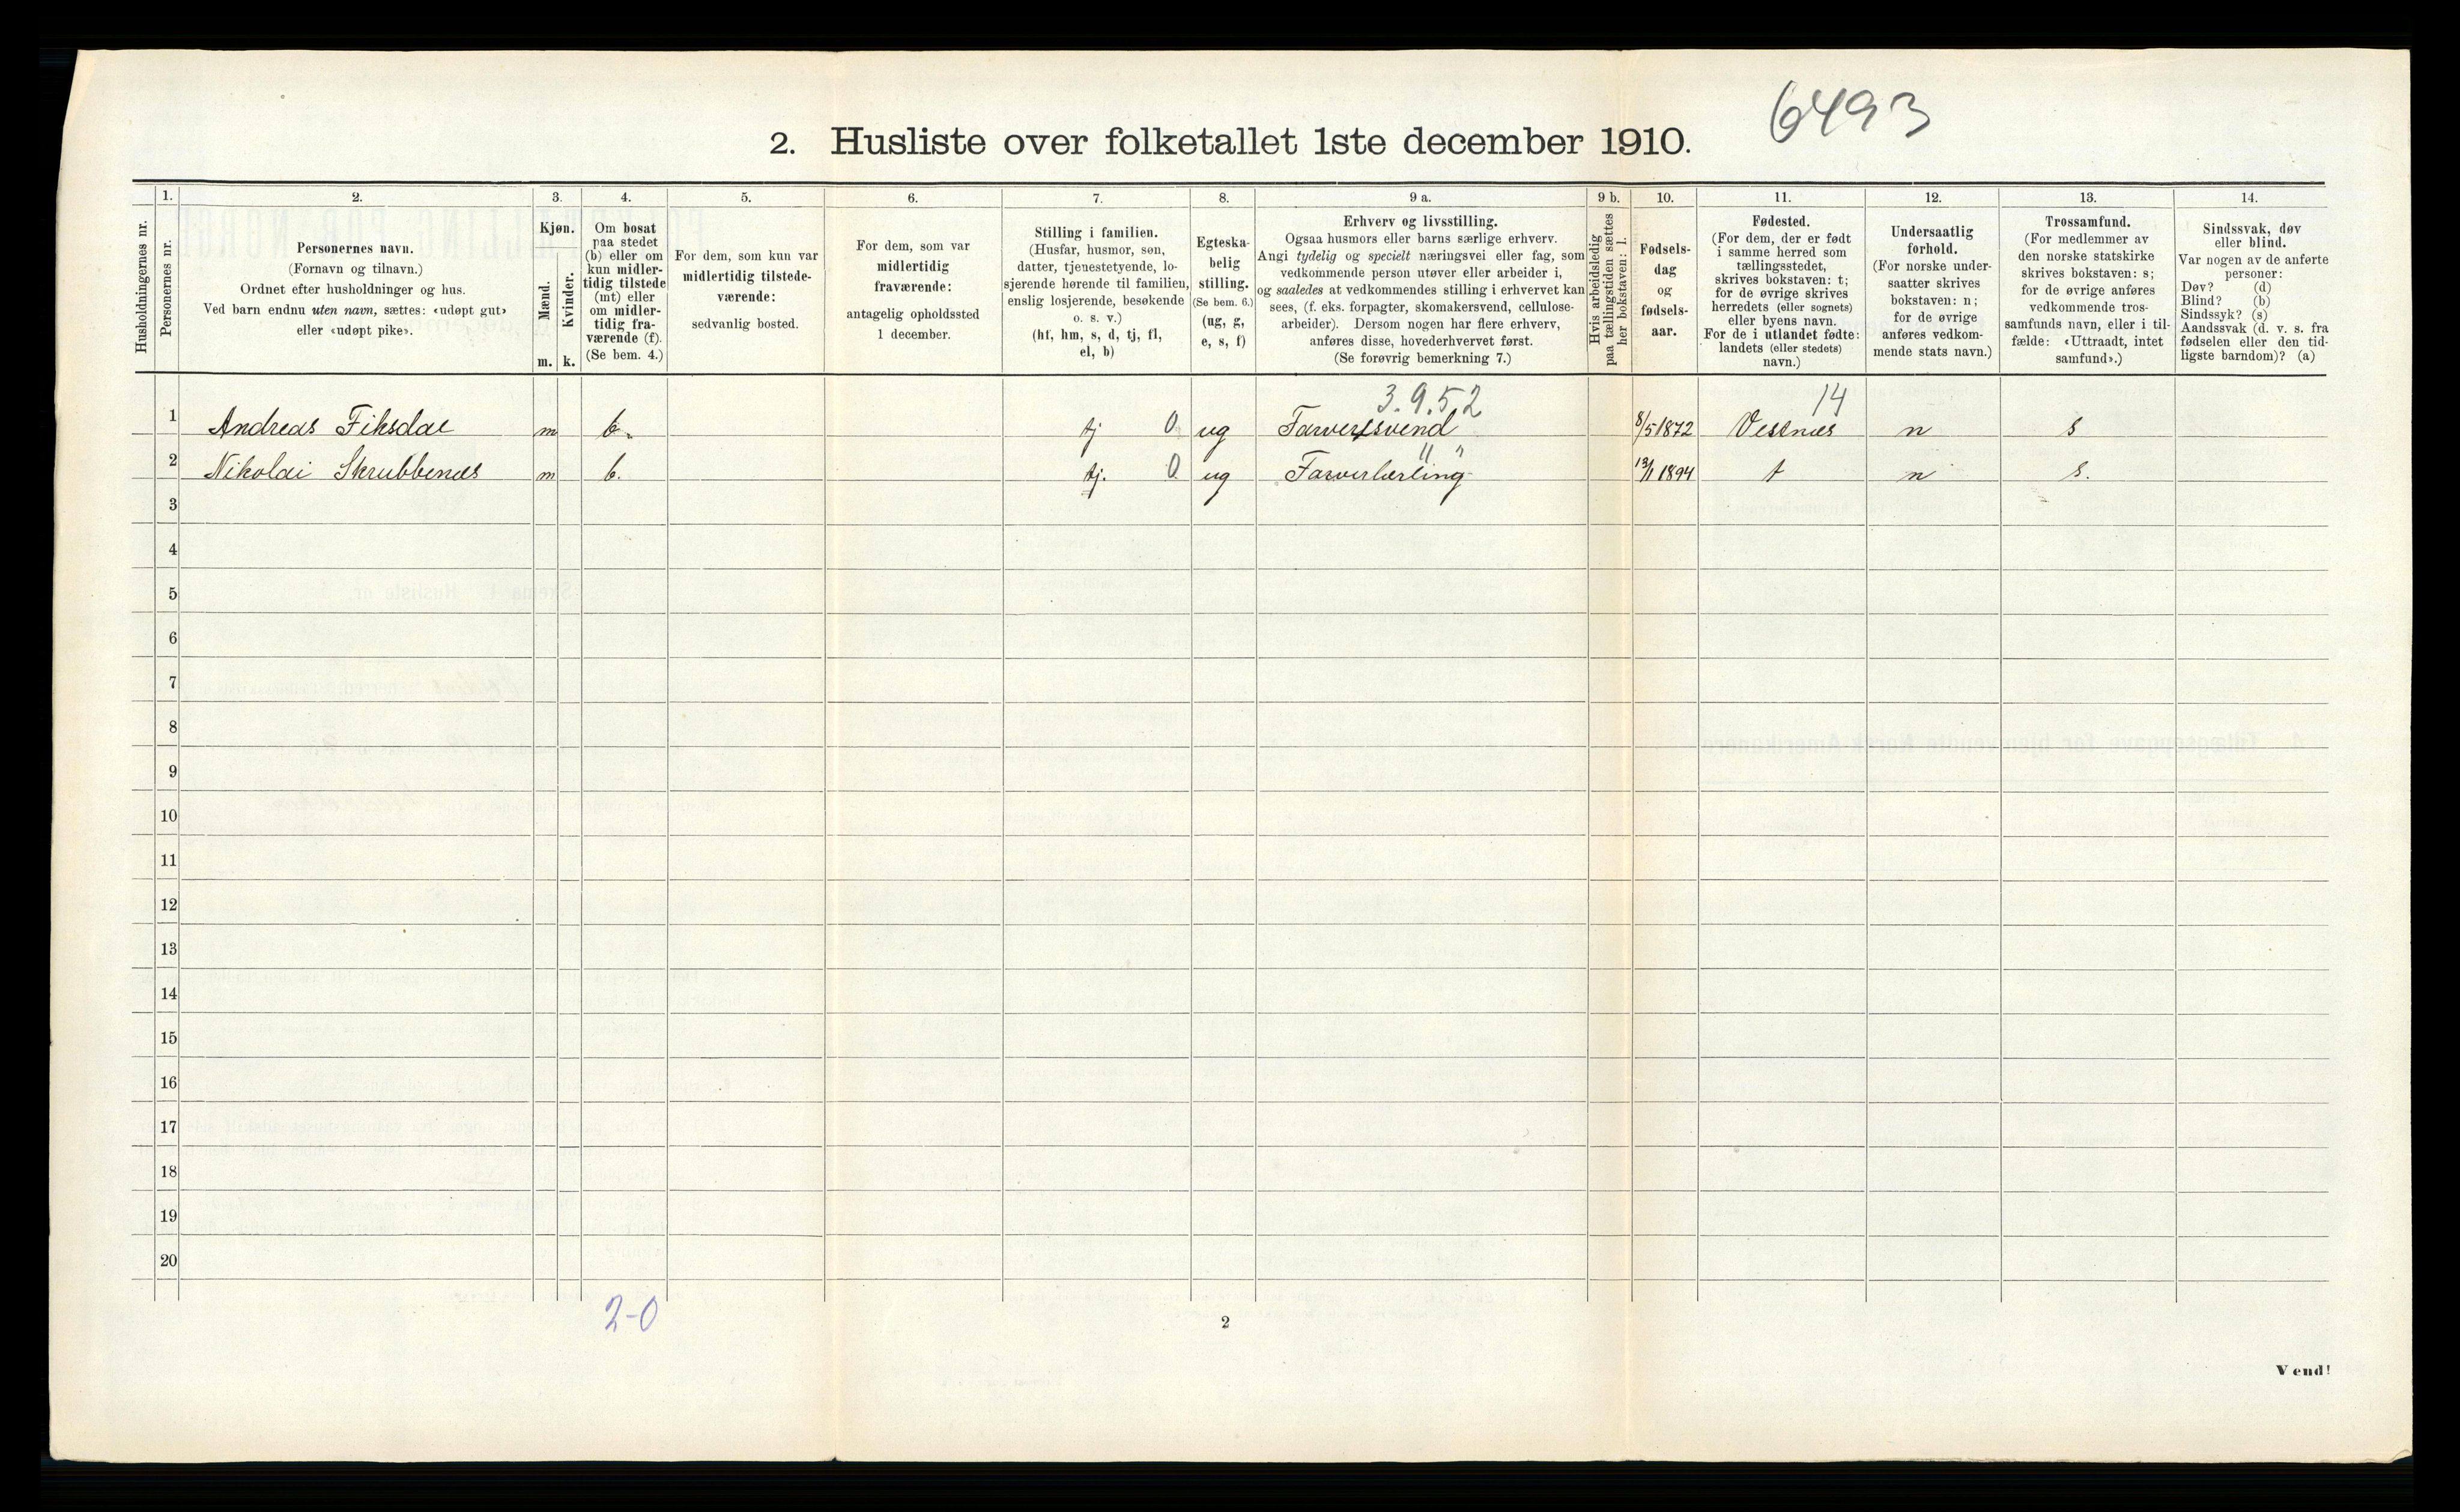 6493
2. Husliste over folketallet 1ste december 1910.
Husholdningernes nr.
1.
Personernes nr.
2.
Personernes navn.
(Fornavn og tilnavn.)
Ordnet efter husholdninger og hus.
Ved barn endnu uten navn, sættes: «udøpt gut»
eller «udøpt pike».
3.
Kjøn.
Mænd.
m.
Kvinder.
k.
4.
Om bosat
paa stedet
(b) eller om
kun midler-
tidig tilstede
(mt) eller
om midler-
tidig fra-
værende (f).
(Se bem. 4.)
5.
For dem, som kun var
midlertidig tilstede-
værende:
sedvanlig bosted.
6.
For dem, som var
midlertidig
fraværende:
antagelig opholdssted
1 december.
7.
Stilling i familien.
(Husfar, husmor, søn,
datter, tjenestetyende, lo-
sjerende hørende til familien,
enslig losjerende, besøkende
o. s. v.)
(hf, hm, s, d, tj, fl,
el, b)
8.
Egteska-
belig
stilling.
(Se bem. 6.)
(ug, g,
e, s, f)
9 a.
Erhverv og livsstilling.
Ogsaa husmors eller barns særlige erhverv.
Angi tydelig og specielt næringsvei eller fag, som
vedkommende person utøver eller arbeider i,
og saaledes at vedkommendes stilling i erhvervet kan
sees, (f. eks. forpagter, skomakersvend, cellulose-
arbeider). Dersom nogen har flere erhverv,
anføres disse, hovederhvervet først.
(Se forøvrig bemerkning 7.)
9 b.
Hvis arbeidsledig
paa tællingstiden sættes
her bokstaven: l.
10.
Fødsels-
dag
og
fødsels-
aar.
11.
Fødested.
(For dem, der er født
i samme herred som
tællingsstedet,
skrives bokstaven: t;
for de øvrige skrives
herredets (eller sognets)
eller byens navn.
For de i utlandet fødte:
landets (eller stedets)
navn.)
12.
Undersaatlig
forhold.
(For norske under-
saatter skrives
bokstaven: n;
for de øvrige
anføres vedkom-
mende stats navn.)
13.
Trossamfund.
(For medlemmer av
den norske statskirke
skrives bokstaven: s;
for de øvrige anføres
vedkommende tros-
samfunds navn, eller i til-
fælde: «Uttraadt, intet
samfund».)
14.
Sindssvak, døv
eller blind.
Var nogen av de anførte
personer:
Døv? (d)
Blind? (b)
Sindssyk? (s)
Aandssvak (d. v. s. fra
fødselen eller den tid-
ligste barndom)? (a)
3.9.52 14
1 Andreas Fiksdal m b. tj 0 ug Farversvend 8/5 1872 Vestnæs n s
" "
2 Nikolai Skrubbenæs m b. tj. 0 ug Farverlærling 1894 t n s.
3
4
5
6
7
8
9
10
11
12
13
14
15
16
17
18
19
20
2-0
2
Vend!